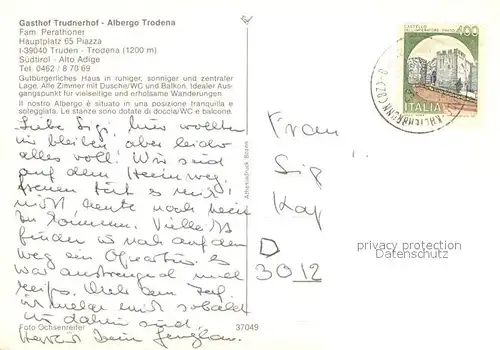 Gasthof Trudnerhof - Albergo Trodena
Fam. Perathoner
Hauptplatz 65 Piazza
I-39040 Truden - Trodena (1200 m)
Südtirol - Alto Adige
Tel. 0462 / 8 70 69
Gutbürgerliches Haus in ruhiger, sonniger und zentraler
Lage. Alle Zimmer mit Dusche/WC und Balkon. Idealer Aus-
gangspunkt für vielseitige und erholsame Wanderungen
Il nostro Albergo è situato in una posizione tranquilla e
soleggiata. Le stanze sono dotate di doccia/WC e balcone.
Liebe Sigi, hier wollten
wir bleiben, aber leider
alles voll! Wir sind
auf dem Heimweg.
freuen
nicht heute noch
zu kommen. Vielleicht
finden wir noch auf dem
weg ein Quartier. Es
war anstrengend und
wir sobald
wir daheim sind.
Foto Ochsenreiter
37049
Athesiadruck Bozen
400
ITALIA
Frau
Sig
Kay
D
3012
privacy protection
Datenschutz